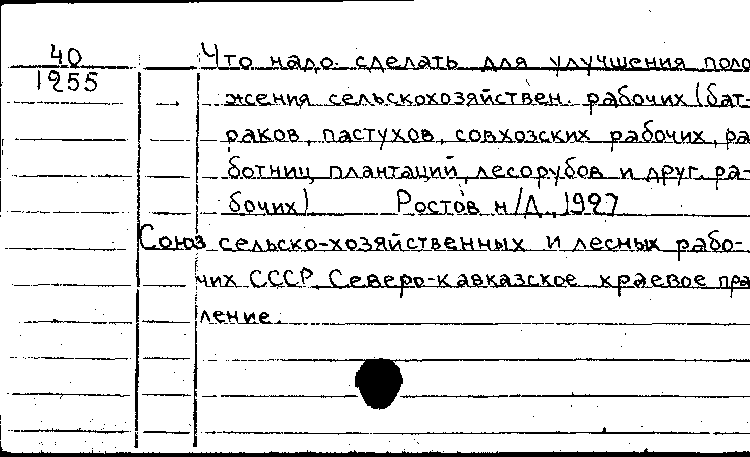 40
1255
Что надо сделать для улучшения поло
жения сельскохозяйствен. рабочих (бат-
раков, пастухов, совхозских рабочих, ра
ботниц плантаций, лесорубов и друг. ра-
бочих) Ростов н/Д., 1927
Союз сельско-хозяйственных и лесных рабо-
чих СССР. Северо-кавказское краевое пра
ление.